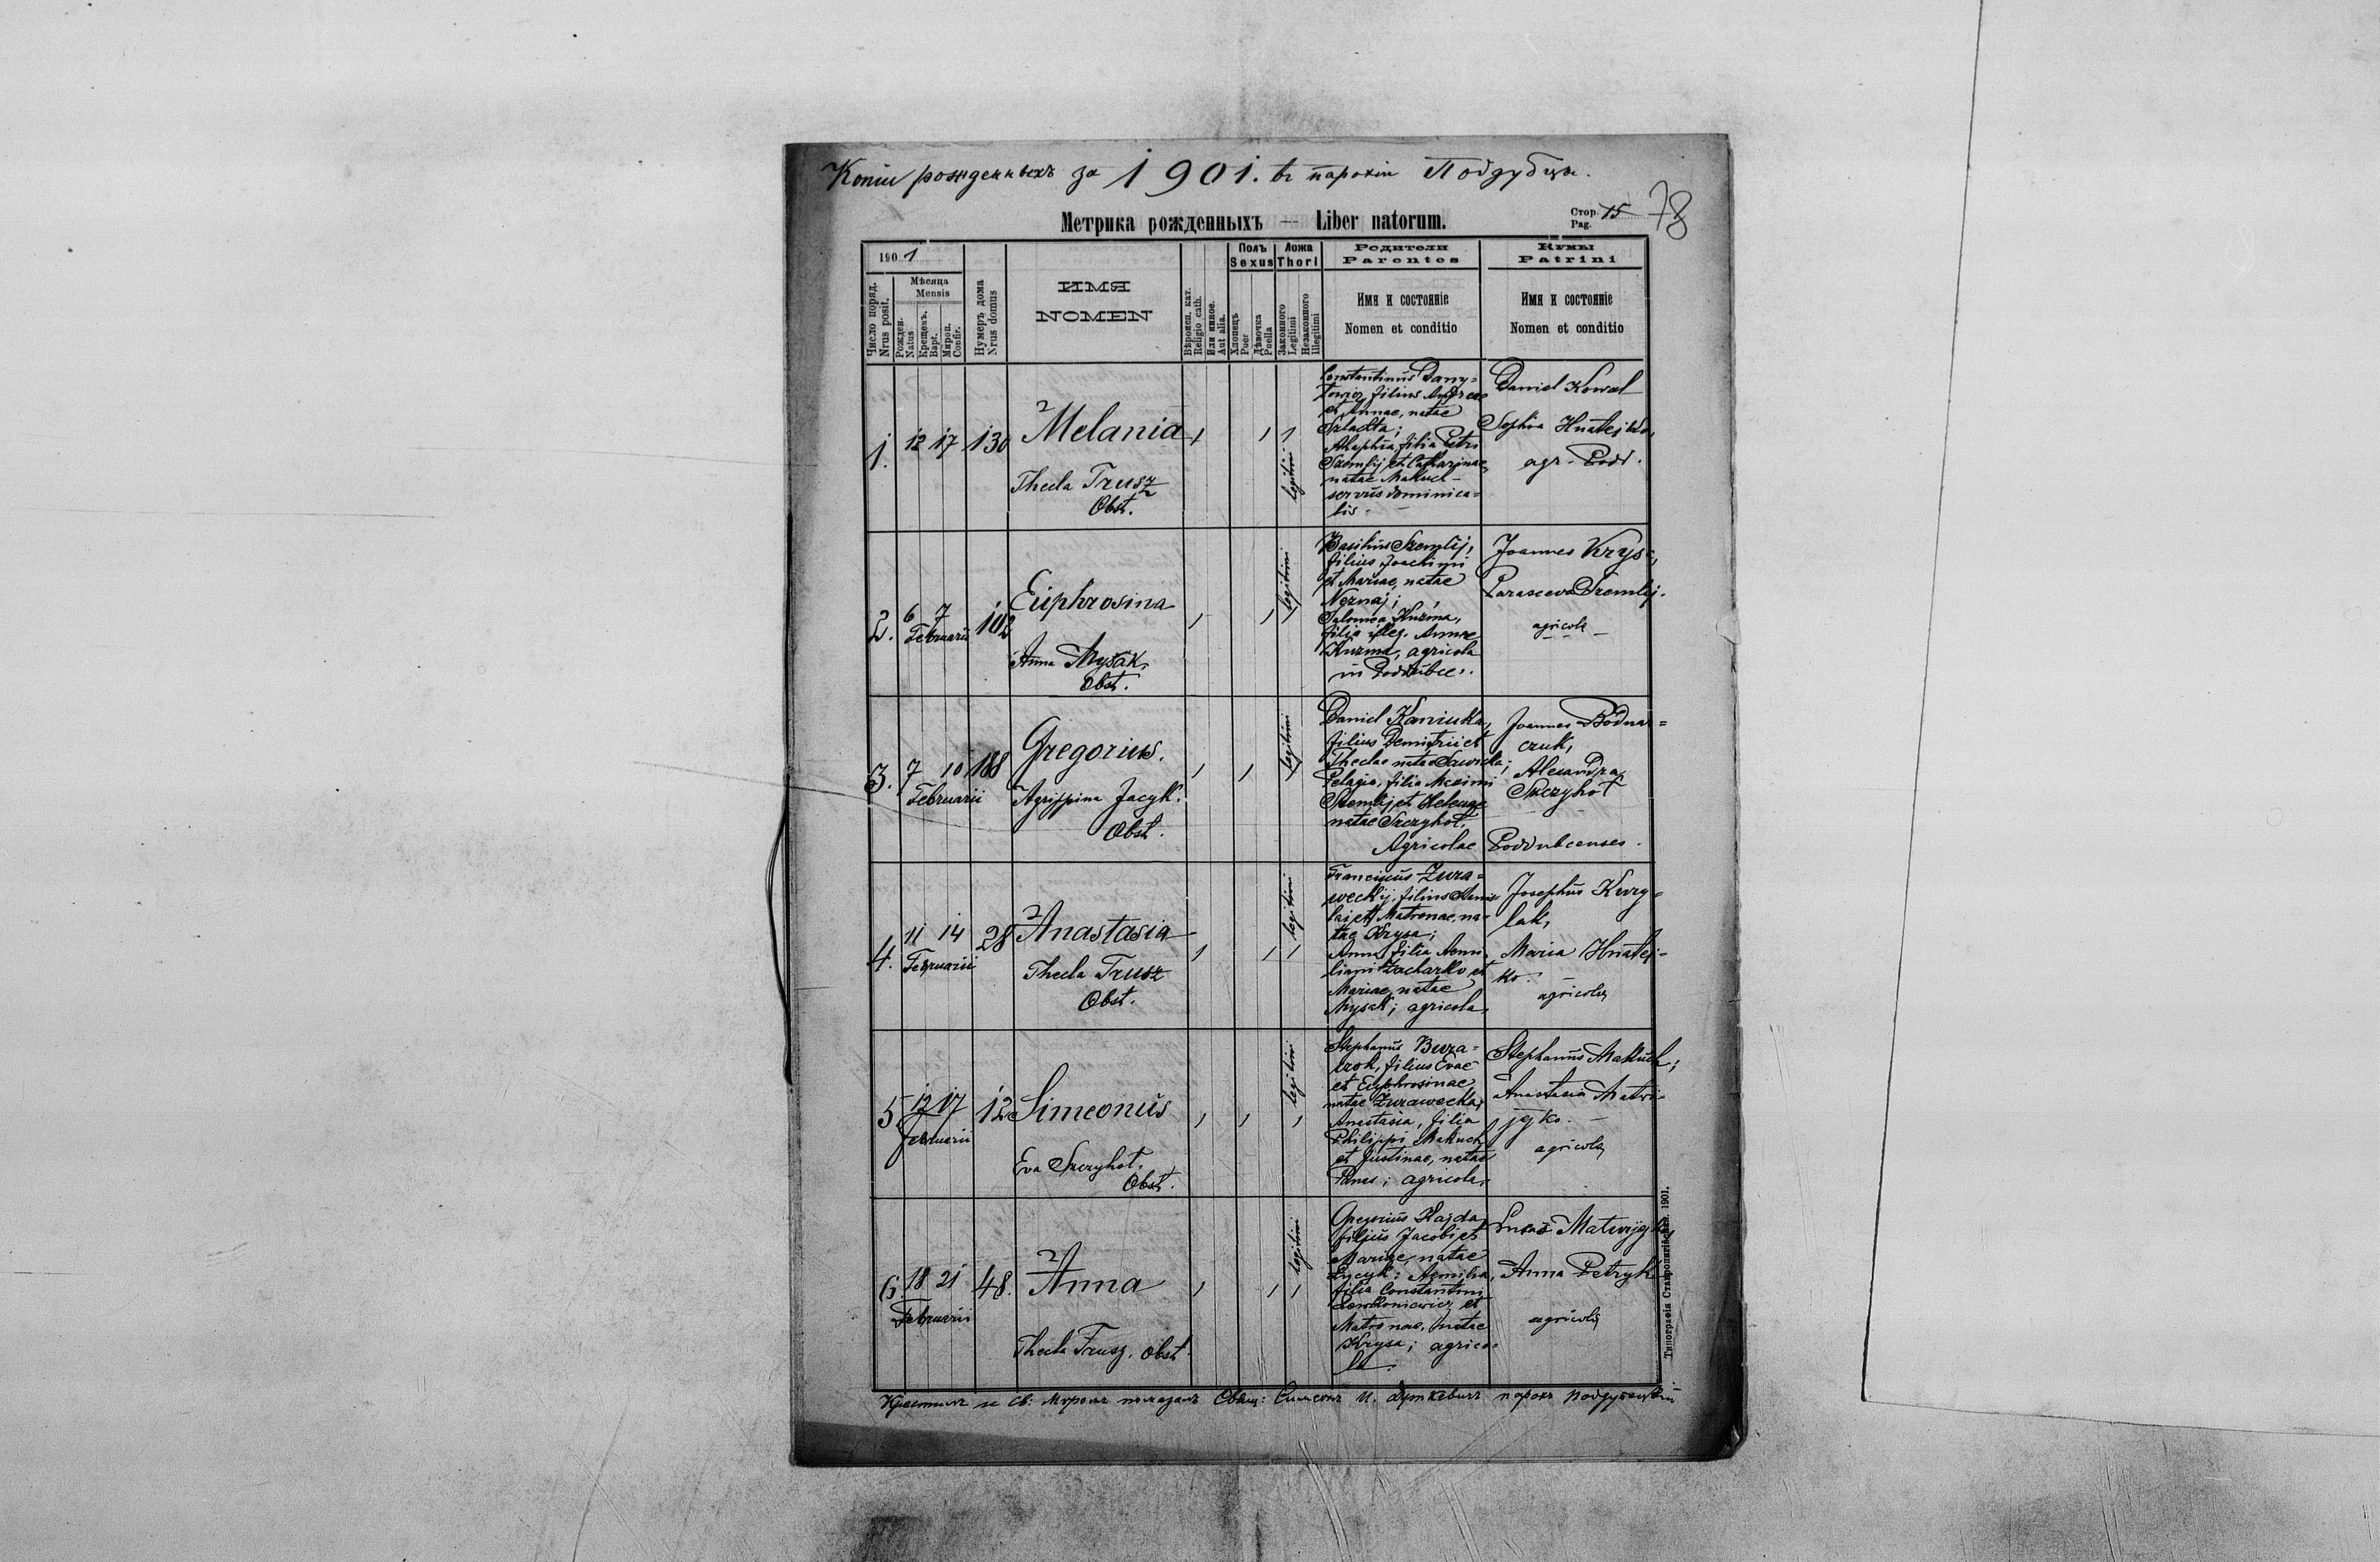 Копія рожденныхъ за 1901. въ парохіи Поддубцѣ.
Метрика рожденныхъ — Liber natorum.
Стор. 15 78
Pag.
1901
Число поряд.
Nrus posit.
Мѣсяца
Mensis
Рожден.
Natus
Крещенъ.
Bapt.
Мироп.
Confir.
Нумеръ дома
Nrus domus
ИМЯ
NOMEN
Вѣроисп. кат.
Religio cath.
Или инное.
Aut alia.
Полъ
Sexus
Хлопецъ
Puer
Дѣвочка
Puella
Ложа
Thori
Законного
Legitimi
Незаконного
Illegitimi
Родители
Parentes
Имя и состояніе
Nomen et conditio
Кумы
Patrini
Имя и состояніе
Nomen et conditio
1.
12 17
130
Melania
Thecla Trusz
Obst.
legitimi
Constantinus Dany=
łowicz, filius Andreae
et Annae, natae
Szlachta;
Ahaphia, filia Petri
Szemlij et Catharinae,
natae Makuch –
servus dominica=
lis –
Daniel Kowal
Sophia Hnatejko,
agr. Podd.
2.
6 7
Februarii
102
Euphrosina
Anna Mysak,
Obst.
legitimi
Basilius Szemlij,
filius Joachimi
et Mariae, natae
Neznaj;
Salomea Kuzma,
filia illeg. Annae
Kuzma, agricola
in Poddubce.
Joannes Krysa,
Parasceva Szemlij.
agricolae
3.
7 10
Februarii
188
Gregorius.
Agrippina Jacyk.
Obst.
legitimi
Daniel Kaniuka,
filius Demitrii et
Theclae natae Sawicka;
Pelagia, filia Maximi
Szemlij et Helenae
natae Szczyhoł.
Agricolae
Joannes Bodnar=
czuk,
Alexandra
Szczyhoł
Poddubcenses.
4.
11 14
Februarii
28
Anastasia
Thecla Trusz
Obst.
legitimi
Franciscus Żura=
weckij, filius
et Matronae, na=
tae Krysa;
Anna filia Aemi=
liani Zacharko et
Mariae, natae
Mysak; agricola,
Josephus Kury=
lak,
Maria Hnatej=
ko.
agricolae
5.
12 17
Februarii
12
Simeonus
Eva Szczyhoł.
Obst.
legitimi
Stephanus Bura=
czok, filius Evae
et Euphrosinae,
natae Żurawecka;
Anastasia, filia
Philippi Makuch
et Justinae, natae
Panas; agricola,
Stephanus Makuch;
Anastasia Matwi=
jejko. –
agricolae
6.
18 21
Februarii
48.
Anna
Thecla Trusz. Obst.
legitimi
Gregorius Hajda,
filius Jacobi et
Mariae, natae
Łycyk; Aemilia,
filia Constantini
Lewkoniewicz et
Matronae, natae
Krysa; agrico=
la.
Lucas Matwijejko
Anna Petryk
agricolae
Крестилъ и св: Муромъ помазалъ Свящ: Симеонъ И. Дуткевичъ парохъ Поддубецкій
Типографія Ставропигійска 1901.